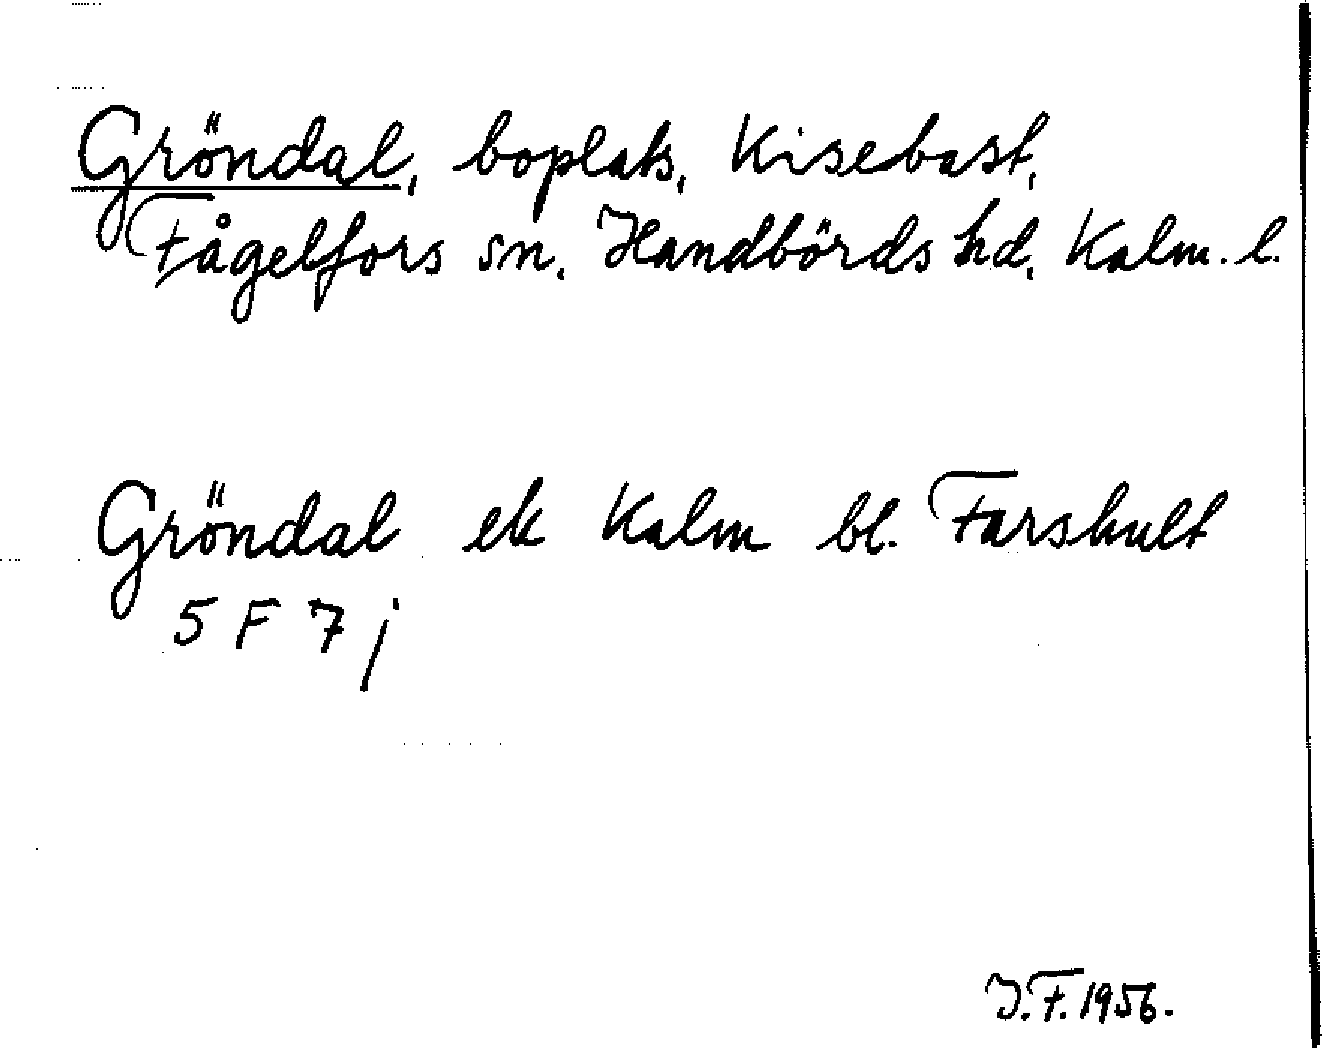 Gröndal, boplats, Kisebast,
Fågelfors sn, Handbörds hd, Kalm. l.
Gröndal ek Kalm bl. Farshult
5 F 7 j
J.F. 1956.